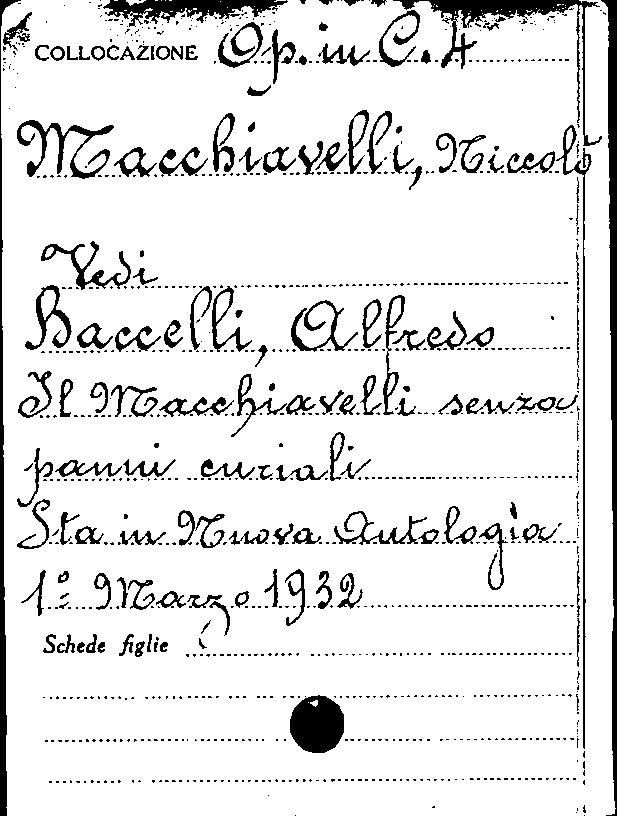 COLLOCAZIONE Op. in C. 4
Macchiavelli, Niccolò
Vedi
Baccelli, Alfredo
Il Macchiavelli senza
panni curiali
Sta in Nuova Antologia
1º Marzo 1932
Schede figlie